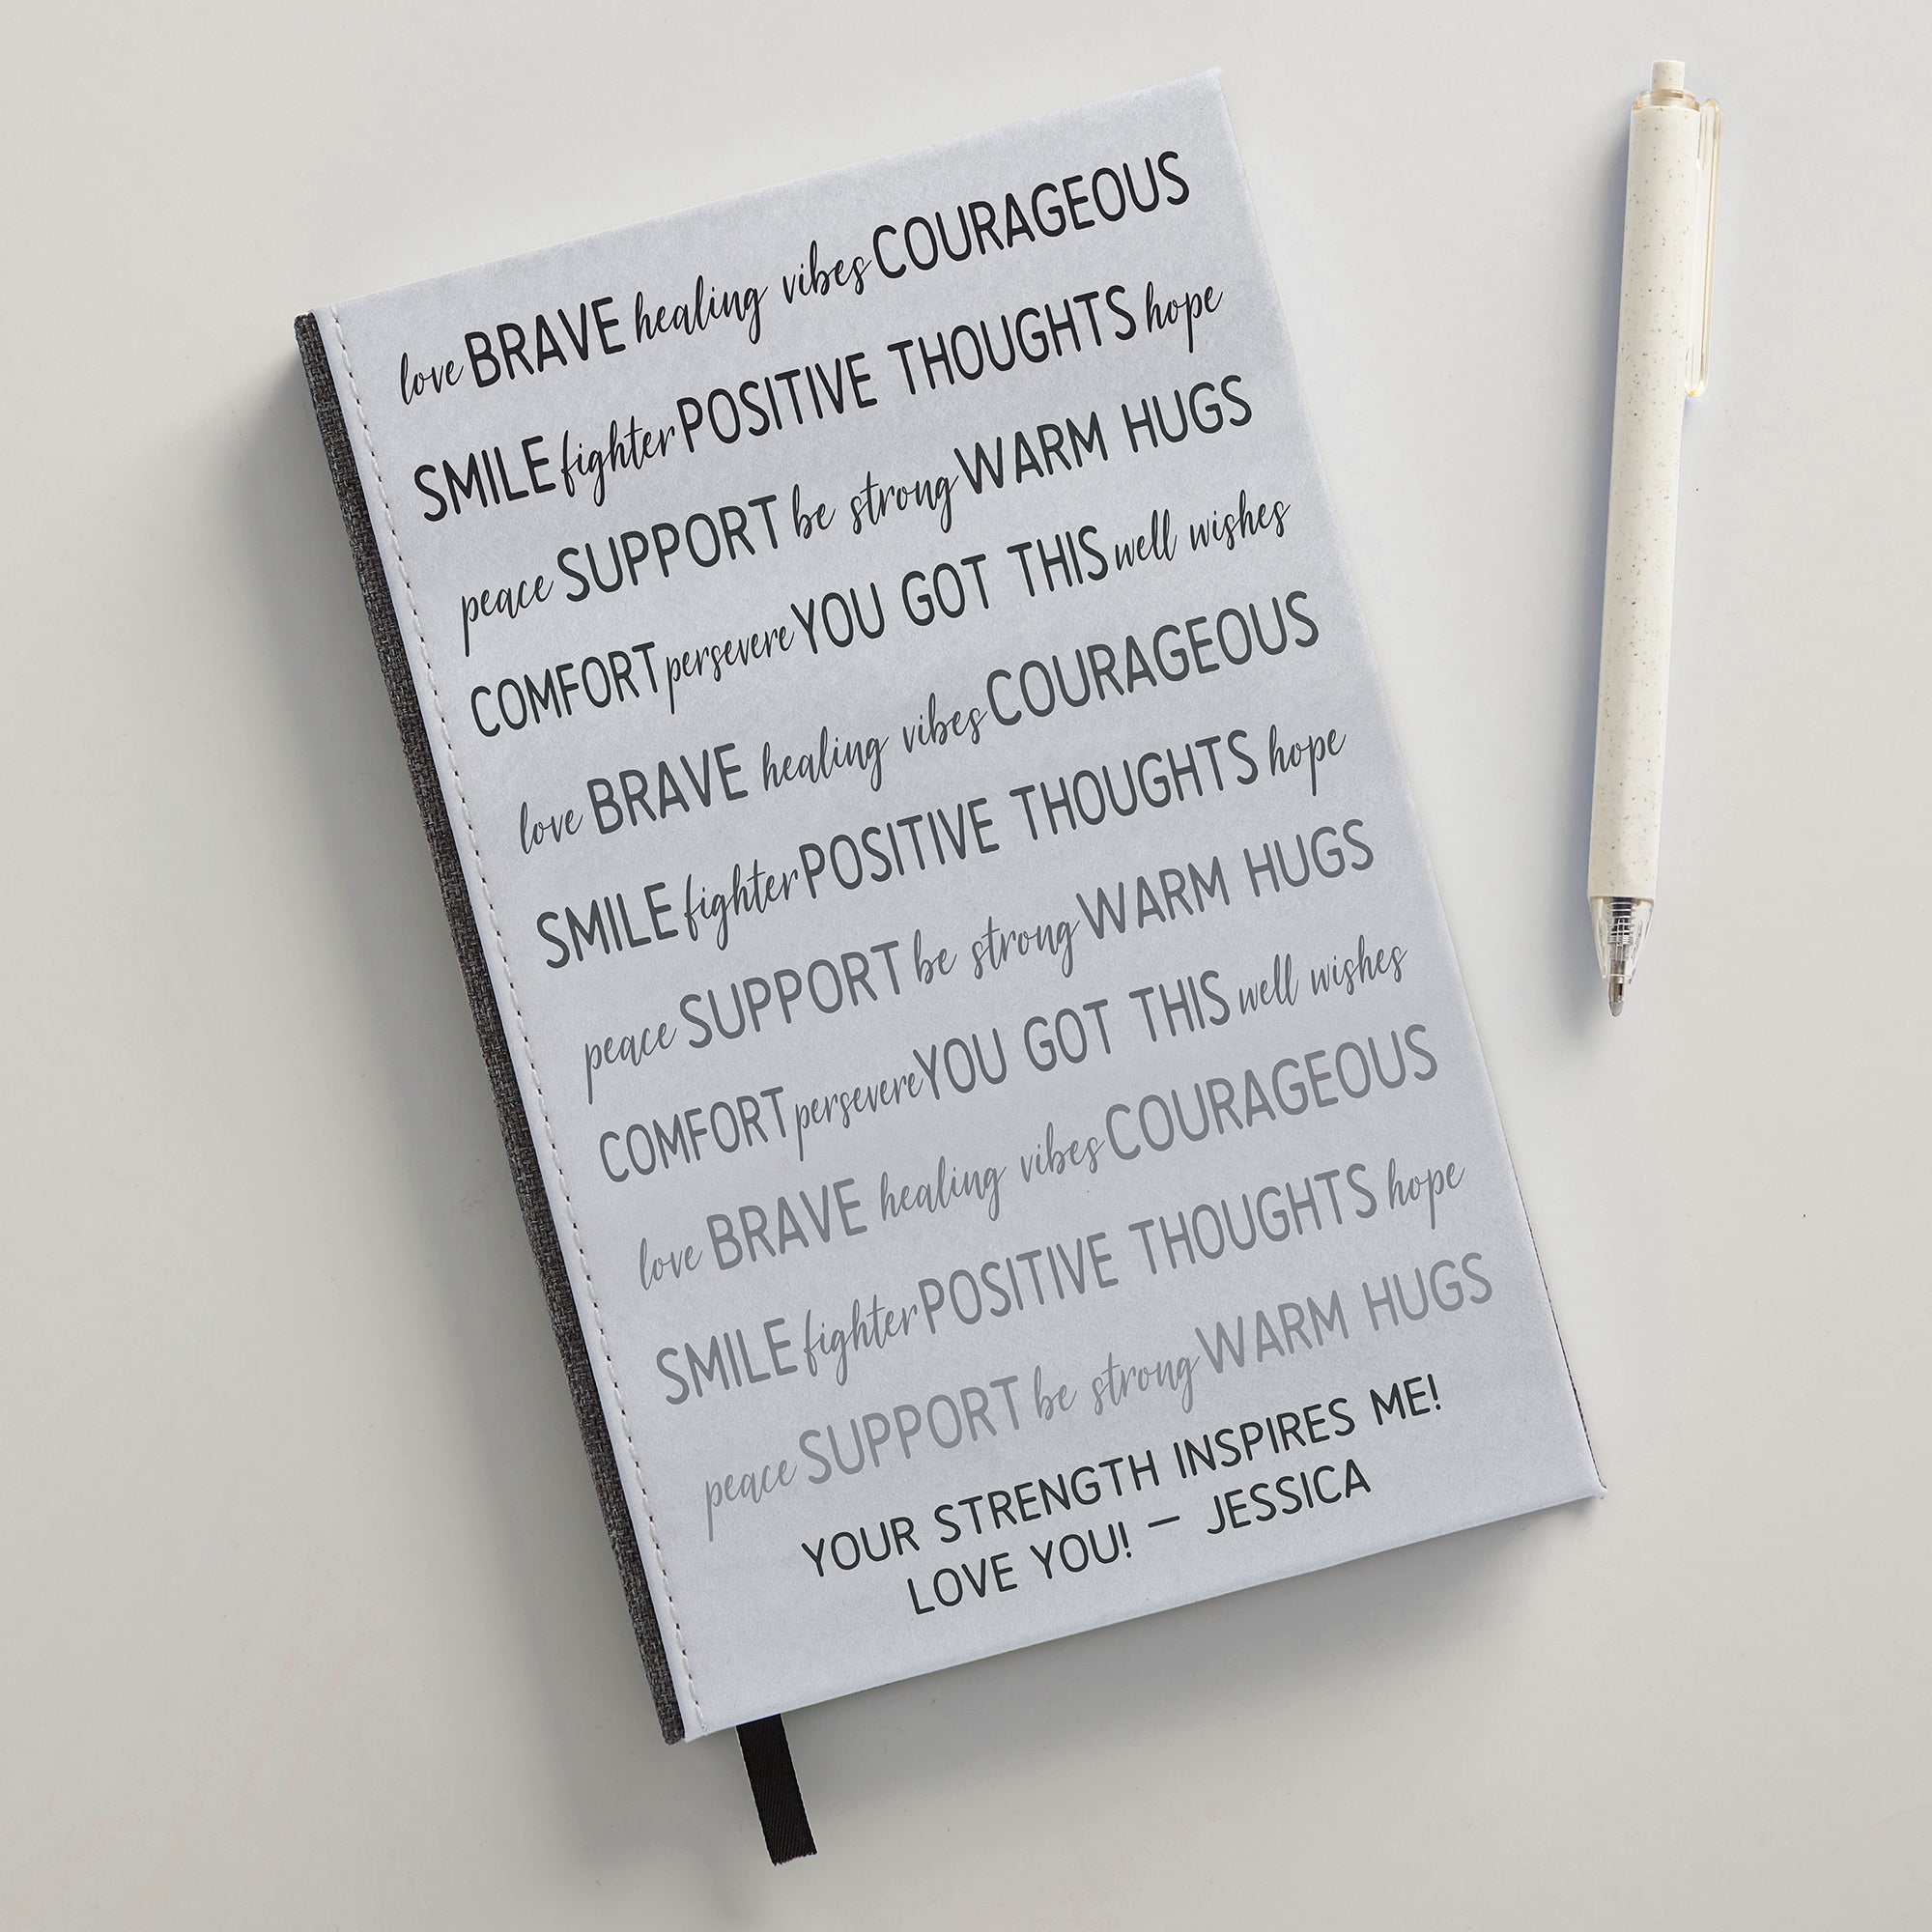 love BRAVE healing vibes COURAGEOUS
SMILE fighter POSITIVE THOUGHTS hope
peace SUPPORT be strong WARM HUGS
COMFORT persevere YOU GOT THIS well wishes
love BRAVE healing vibes COURAGEOUS
SMILE fighter POSITIVE THOUGHTS hope
peace SUPPORT be strong WARM HUGS
COMFORT persevere YOU GOT THIS well wishes
love BRAVE healing vibes COURAGEOUS
SMILE fighter POSITIVE THOUGHTS hope
peace SUPPORT be strong WARM HUGS
YOUR STRENGTH INSPIRES ME!
LOVE YOU! — JESSICA